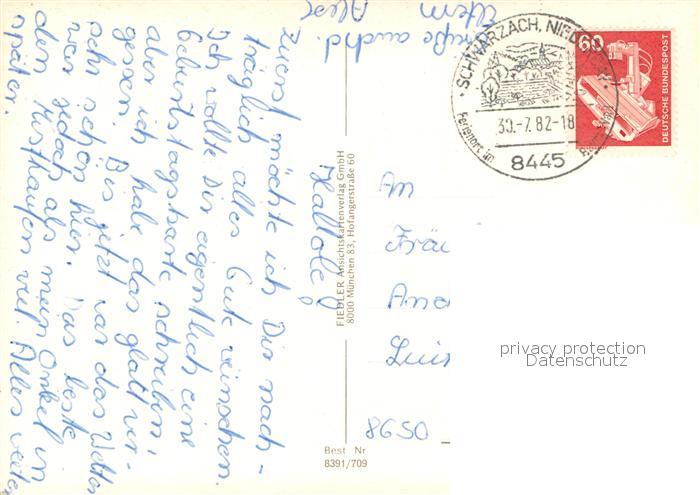 Hallole!
Zuerst möchte ich Dir nach-
träglich alles Gute wünschen.
Ich wollte Dir eigentlich eine
Geburtstagskarte schreiben,
aber ich habe das glatt ver-
gessen. Bis jetzt war das Wetter
sehr schön hier. Das beste
war jedoch als mein Onkel in
den Misthaufen viel. Alles weitere
später.
Grüße auch d.
Eltern
SCHWARZACH, NIED
30.-7.82-18
Ferienort im
8445
60
DEUTSCHE BUNDESPOST
FIEDLER Ansichtskartenverlag GmbH
8000 München 83, Hofangerstraße 60
An
Fräu
And
Luis
8650
privacy protection
Datenschutz
Best Nr
8391/709